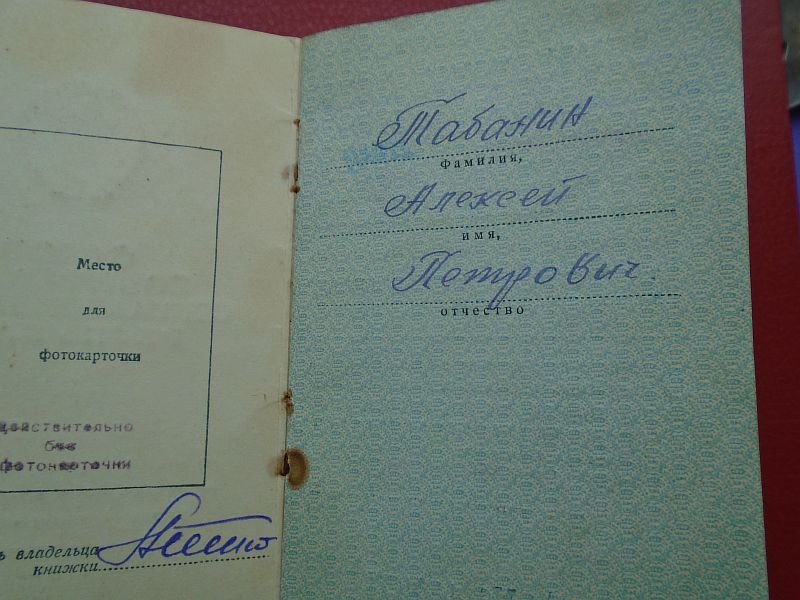 Место
для
фотокарточки
действительно
без
фотокарточки
ь владельца
книжки
Табанин
фамилия,
Алексей
имя,
Петрович.
отчество